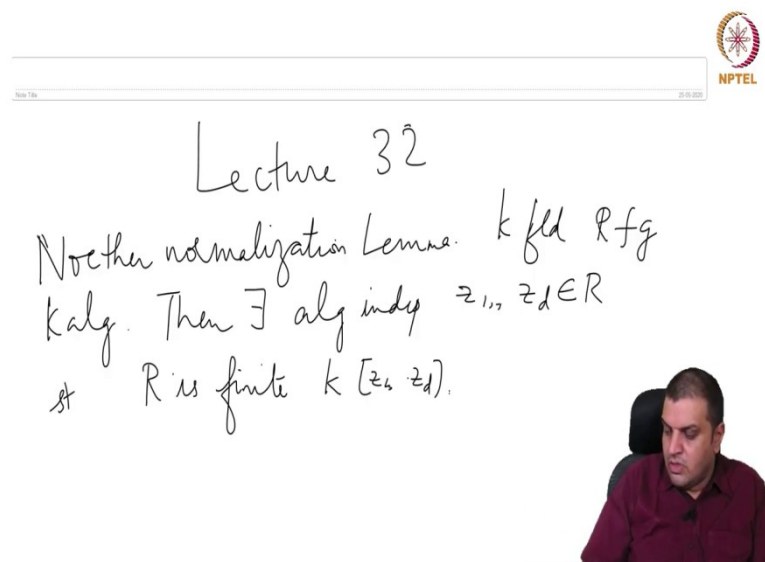 NPTEL
Note Title
25-05-2020
Lecture 32
Noether normalization Lemma. k fld R fg
k alg. Then ∃ alg indep z1,, zd ∈ R
st R is finite k [z1, zd].